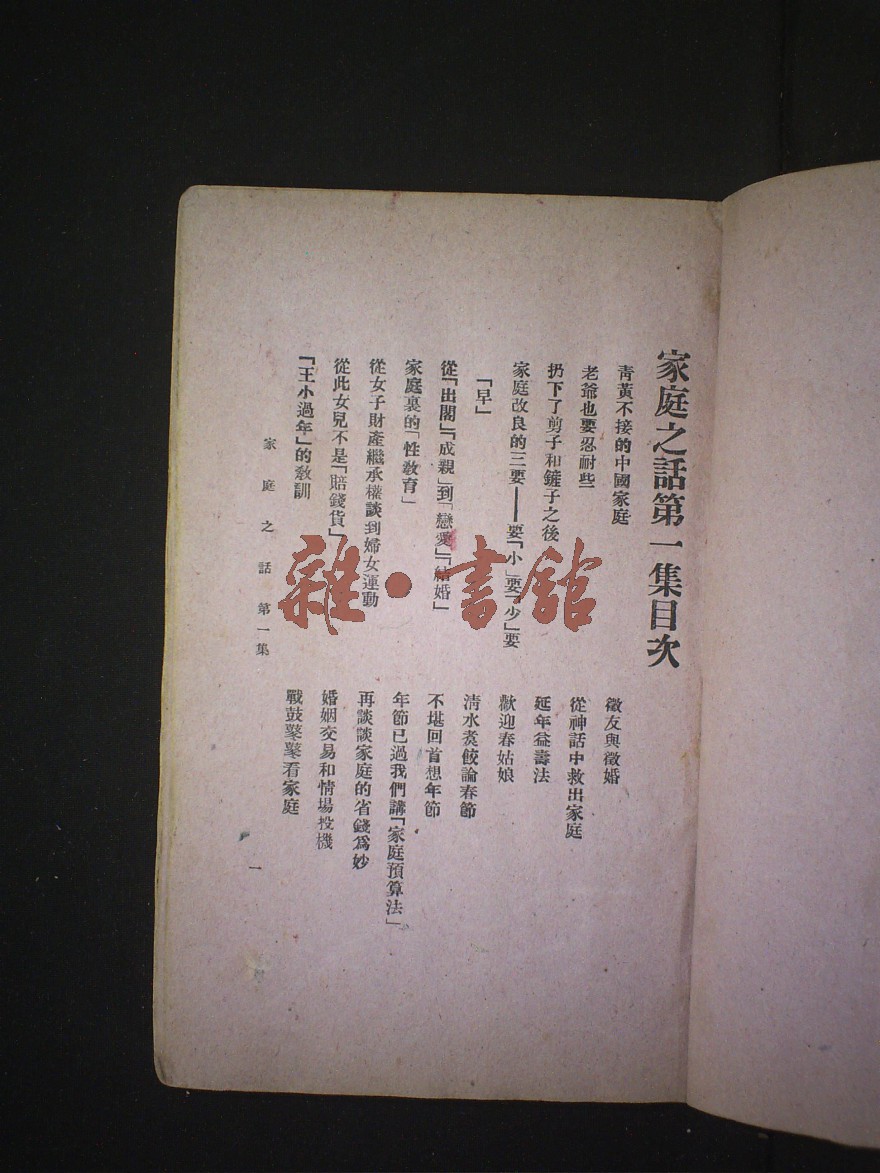 家庭之話第一集目次
青黃不接的中國家庭
老爺也要忍耐些
扔下了剪子和鏟子之後
家庭改良的三要——要「小」要「少」要
「早」
從「出閣」「成親」到「戀愛」「結婚」
家庭裏的「性教育」
從女子財產繼承權談到婦女運動
從此女兒不是「賠錢貨」
「王小過年」的教訓
徵友與徵婚
從神話中救出家庭
延年益壽法
歡迎春姑娘
清水煑餃論春節
不堪回首想年節
年節已過我們講「家庭預算法」
再談談家庭的省錢爲妙
婚姻交易和情場投機
戰鼓鼕鼕看家庭
家庭之話 第一集
一
雜·書館